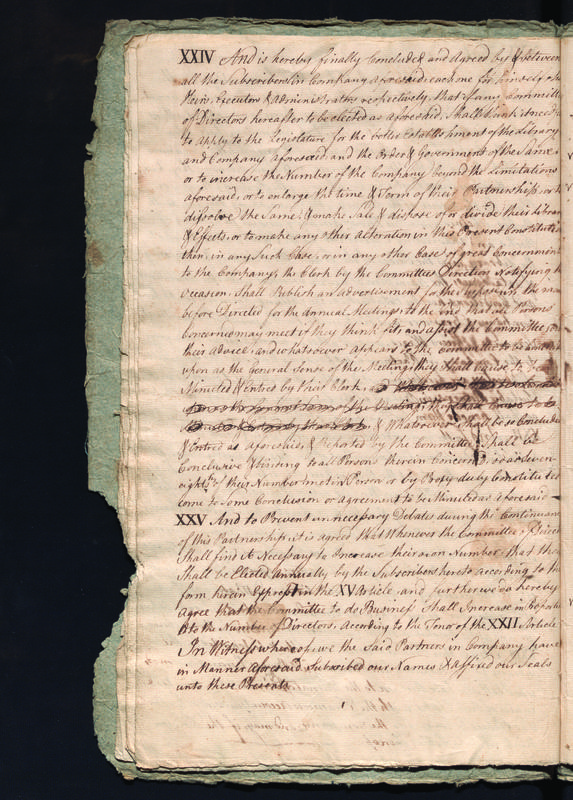 XXIV And is hereby finally Concluded and Agreed by & between
all the Subscribers in Company aforesaid, each one for himself & his
Heirs, Executors & administrators respectively, that if any committee
of Directors hereafter to be elected as aforesaid, Shall think it need
to apply to the Legislature for the better Establishment of the Library
and Company aforesaid and the Order & Government of the Same
or to increase the Number of the Company beyond the Limitations
aforesaid, or to enlarge the time & Term of their Partnership, or to
dissolve the Same, & make Sale & dispose of or divide their Library
& Effects, or to make any other Alteration in this Present Constitution
then, in any Such Case, or in any other Case of great Concernment
to the Company, the Clerk by the Committees Direction Notifying the
Occasion, Shall Publish an advertisement for the
before Directed for the annual Meetings to the end that all Persons
concern'd may meet if they think fit and assist the Committee
their advice, and whatsoever appears to the committee to be
upon as the General Sense of the Meeting they Shall cause to be
Minuted & entred by their Clerk
& Whatsoever Shall be so Concluded
& Entred as aforesaid, & Reported by the Committee Shall be
Conclusive & binding to all Persons therein Concern'd, so as Seven-
eights of their Number met in Person or by Proxy duly Constituted
come to Some Conclusion or Agreement to be Minuted as aforesaid
XXV And to Prevent unnecessary Debates during the Continuance
of this Partnership it is agreed that Whenever the Committee of Directors
Shall find it Necessary to Increase their own Number that they
Shall be Elected annually by the Subscribers hereto according to the
form herein Exprest in the XV Article, and further we do hereby
agree that the Committee to do Business Shall Increase in Proportion
to the Number of Directors, According to the Tenor of the XXII Article
In Witness whereof, we the Said Partners in Company have
in Manner aforesaid Subscribed our Names & affixed our Seals
unto these Presents